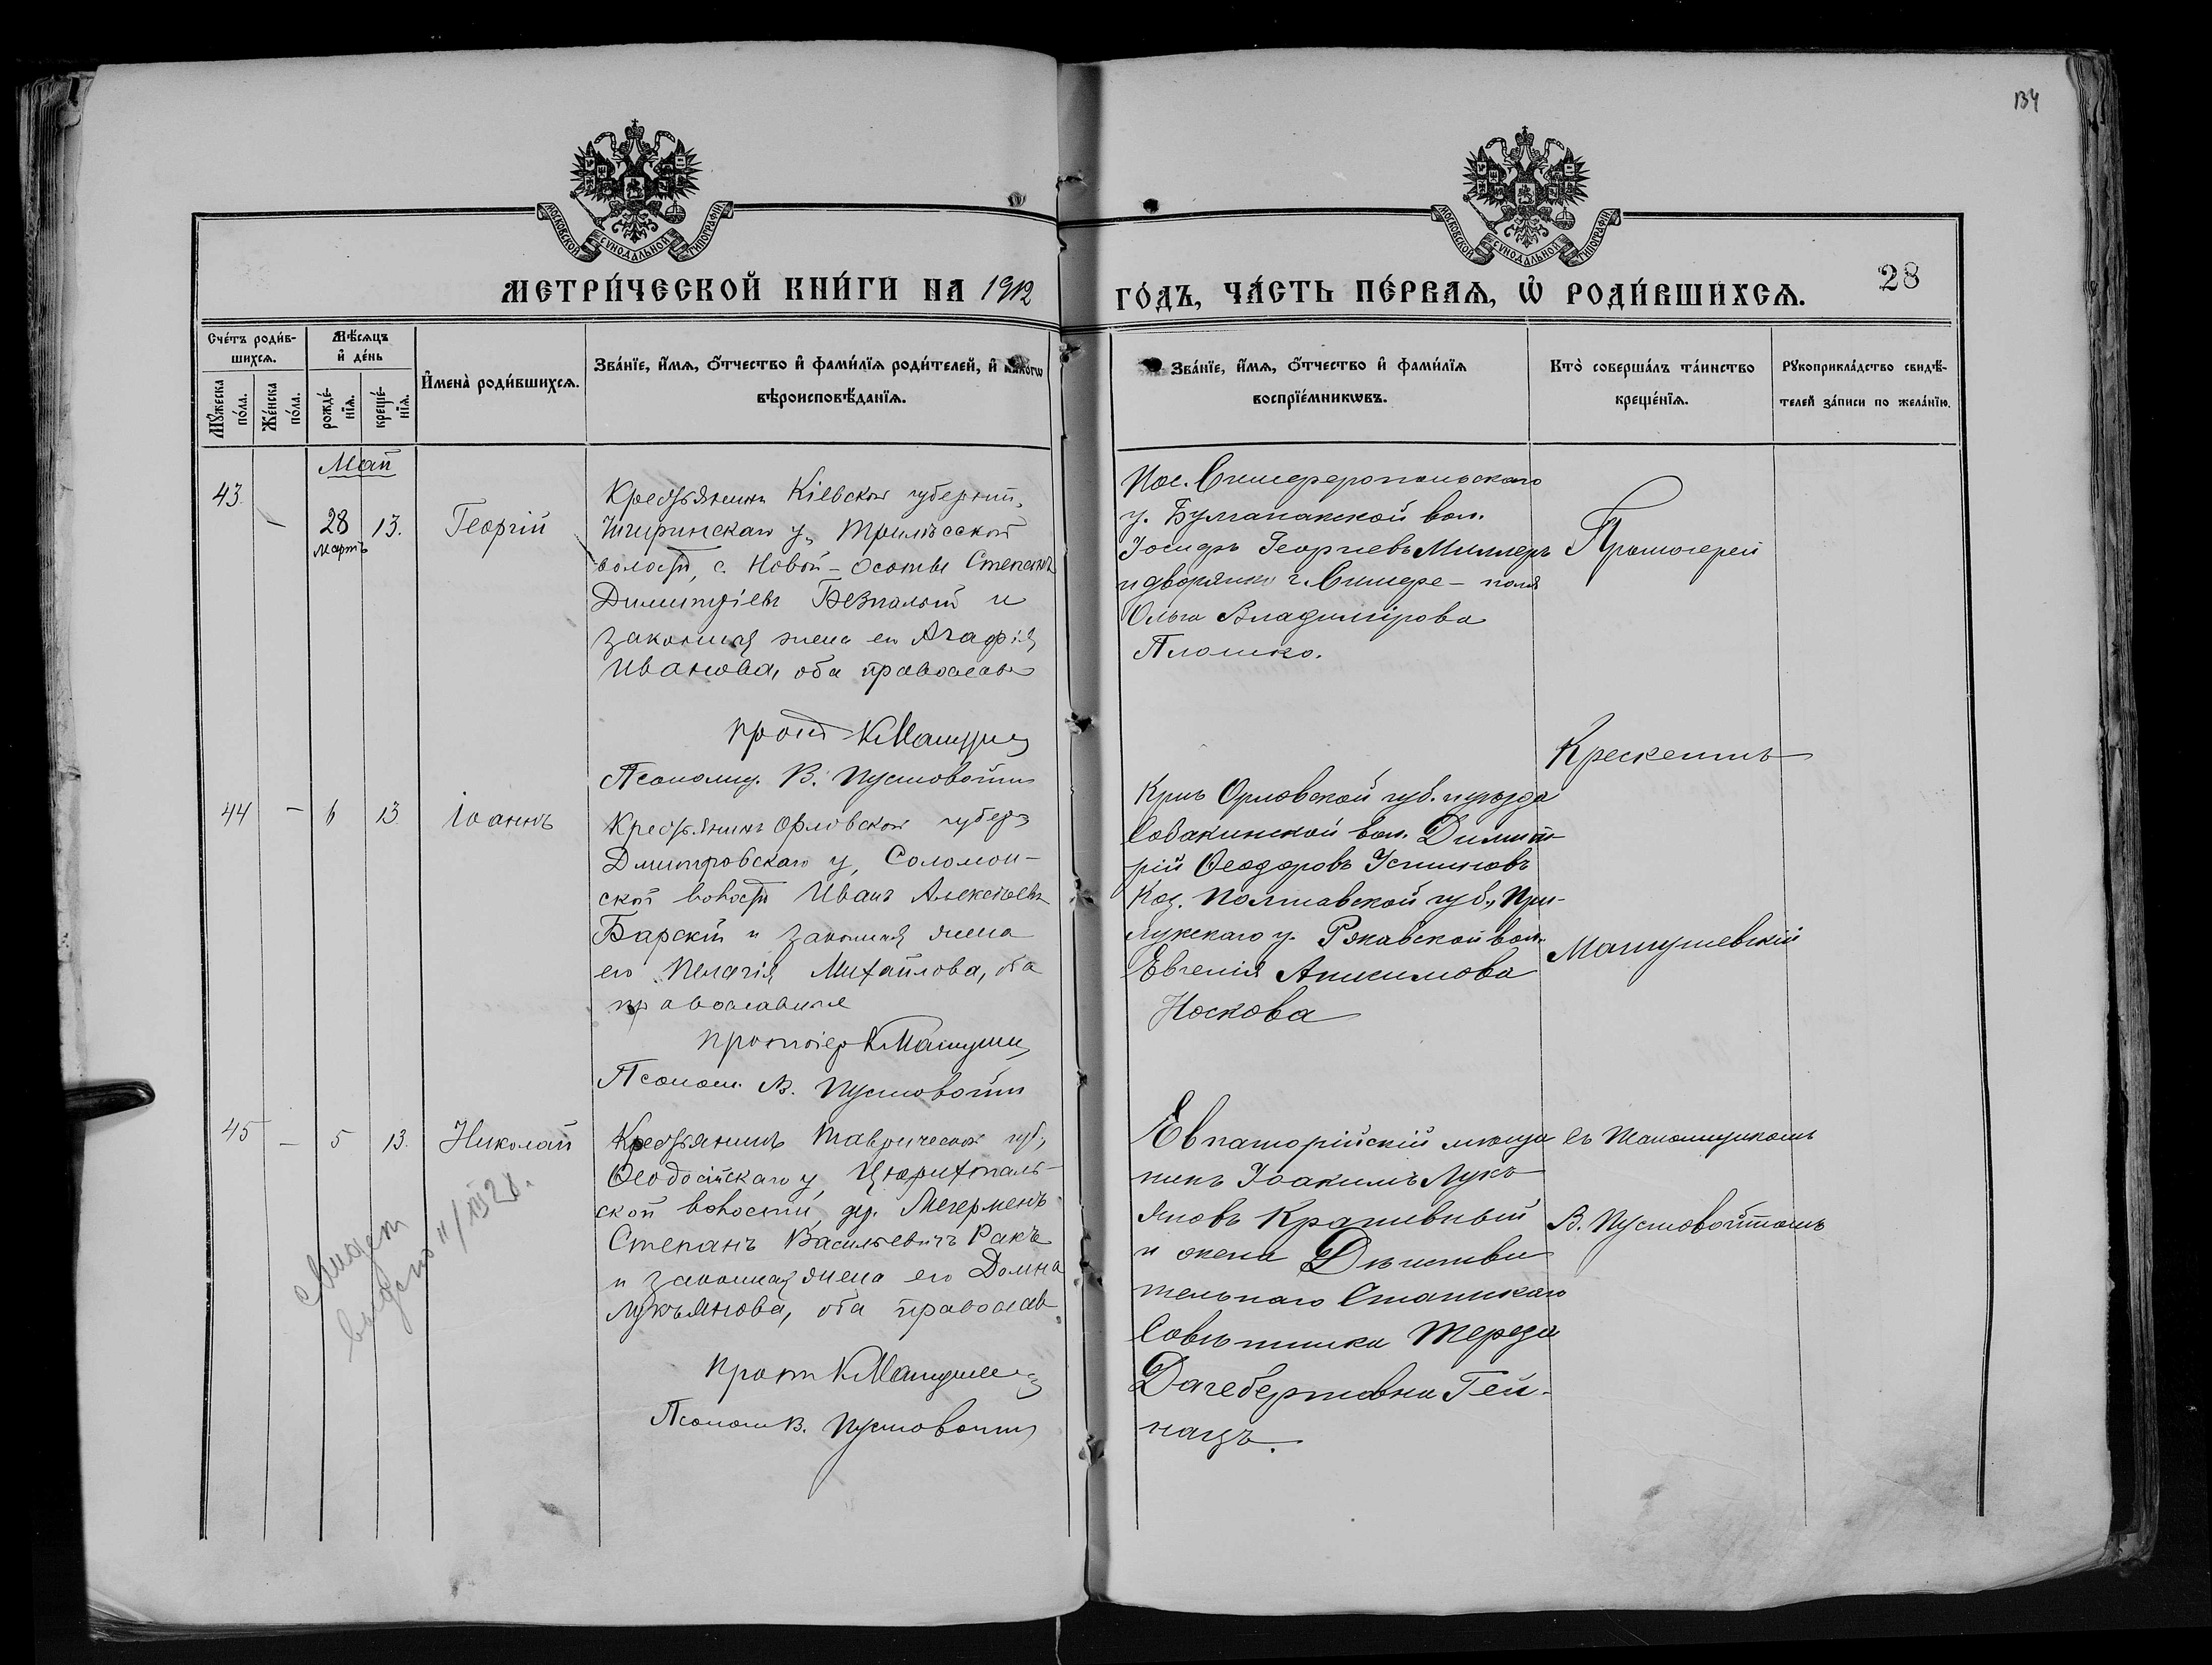 134
МОСКОВСКОЙ СУНОДАЛЬНОЙ ТИПОГРАФІИ
МОСКОВСКОЙ СУНОДАЛЬНОЙ ТИПОГРАФІИ
МЕТРИ́ЧЕСКОЙ КНИ́ГИ НА 1912
ГО́ДЪ, ЧА́СТЬ ПЕ́РВАѦ, Ѽ РОДИ́ВШИХСѦ. 28
Сче́тъ роди́в-
шихсѧ.
Мꙋ́жеска
по́ла.
Же́нска
по́ла.
Мѣ́сѧцъ
и҆ де́нь
рожде́-
нїѧ.
креще́-
нїѧ.
И҆мена̀ роди́вшихсѧ.
Зва́нїе, и҆́мѧ, ѻ҆́тчество и҆ фами́лїѧ роди́телей, и҆ како́гѡ
вѣроисповѣ́данїѧ.
Зва́нїе, и҆́мѧ, ѻ҆́тчество и҆ фами́лїѧ
воспрїе́мникѡвъ.
Кто̀ соверша́лъ та́инство
креще́нїѧ.
Рꙋкоприкла́дство свидѣ́-
телей за́писи по жела́нїю.
Май
43. – 28 мартъ 13. Георгій
Крестьянинъ Кіевской губерніи,
Чигиринскаго у., Трилѣсской
волости, с. Новой-Осоты Степанъ
Димитріевъ Безпалый и
законная жена его Агафія
Иванова, оба православ
прот К Матуш
Псаломщ. В. Пустовойтъ
Пос. Симферопольскаго
у. Булганакской вол.
Іосифъ Георгіевъ Миллеръ
и дворянка г. Симфе-поля
Ольга Владимірова
Плошко.
Протоіерей
Крескентъ
44 – 6 13. Іоаннъ
Крестьянинъ Орловской губер
Дмитровскаго у, Соломин-
ской волости Иванъ Алексѣевъ
Барскій и законная жена
его Пелагія Михайлова, оба
православные
протоіер К Матуш
Псалом. В. Пустовойтъ
Крнъ Орловской губ. и уѣзда
Собакинской вол. Димит-
рій Ѳеодоровъ Устиновъ
Каз. Полтавской губ., При-
лукскаго у. Ряжавской вол.
Евгенія Анисимова
Носкова
Матушевскій
45 – 5 13. Николай
Крестьянинъ Таврической губ,
Ѳеодосійскаго у, Цюрихталь-
ской волости, дер. Мегерменъ
Степанъ Васильевичъ Ракъ
и законная жена его Домна
Лукьянова, оба православ.
прот К Матушев
Псалом В. Пустовойтъ
Евпаторійскій мѣща
нинъ Іоакимъ Лукь
яновъ Крапивный
и жена Дѣйстви
тельнаго Статскаго
Совѣтника Тереза
Дагебертовна Гей-
нацъ.
съ Псаломщикомъ
В. Пустовойтомъ
выдано 11/III 21.